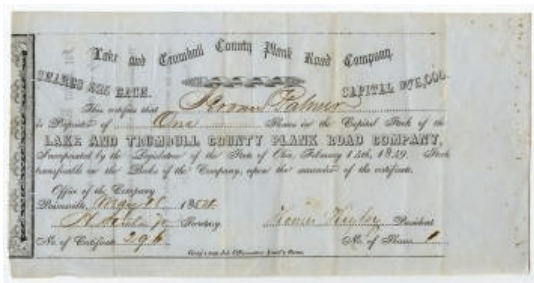 Lake and Trumbull County Plank Road Company.
SHARES $25 EACH. CAPITAL $75,000.
This certifies that Palmer
is Proprietor of One Shares in the Capital Stock of the
LAKE AND TRUMBULL COUNTY PLANK ROAD COMPANY,
Incorporated by the Legislature of the State of Ohio, February 15th, 1849. Stock
transferable on the Books of the Company, upon the surrender of the certificate.
Office of the Company
Painesville, May 185
Secretary President
No. of Certificate 296 No. of Shares 1